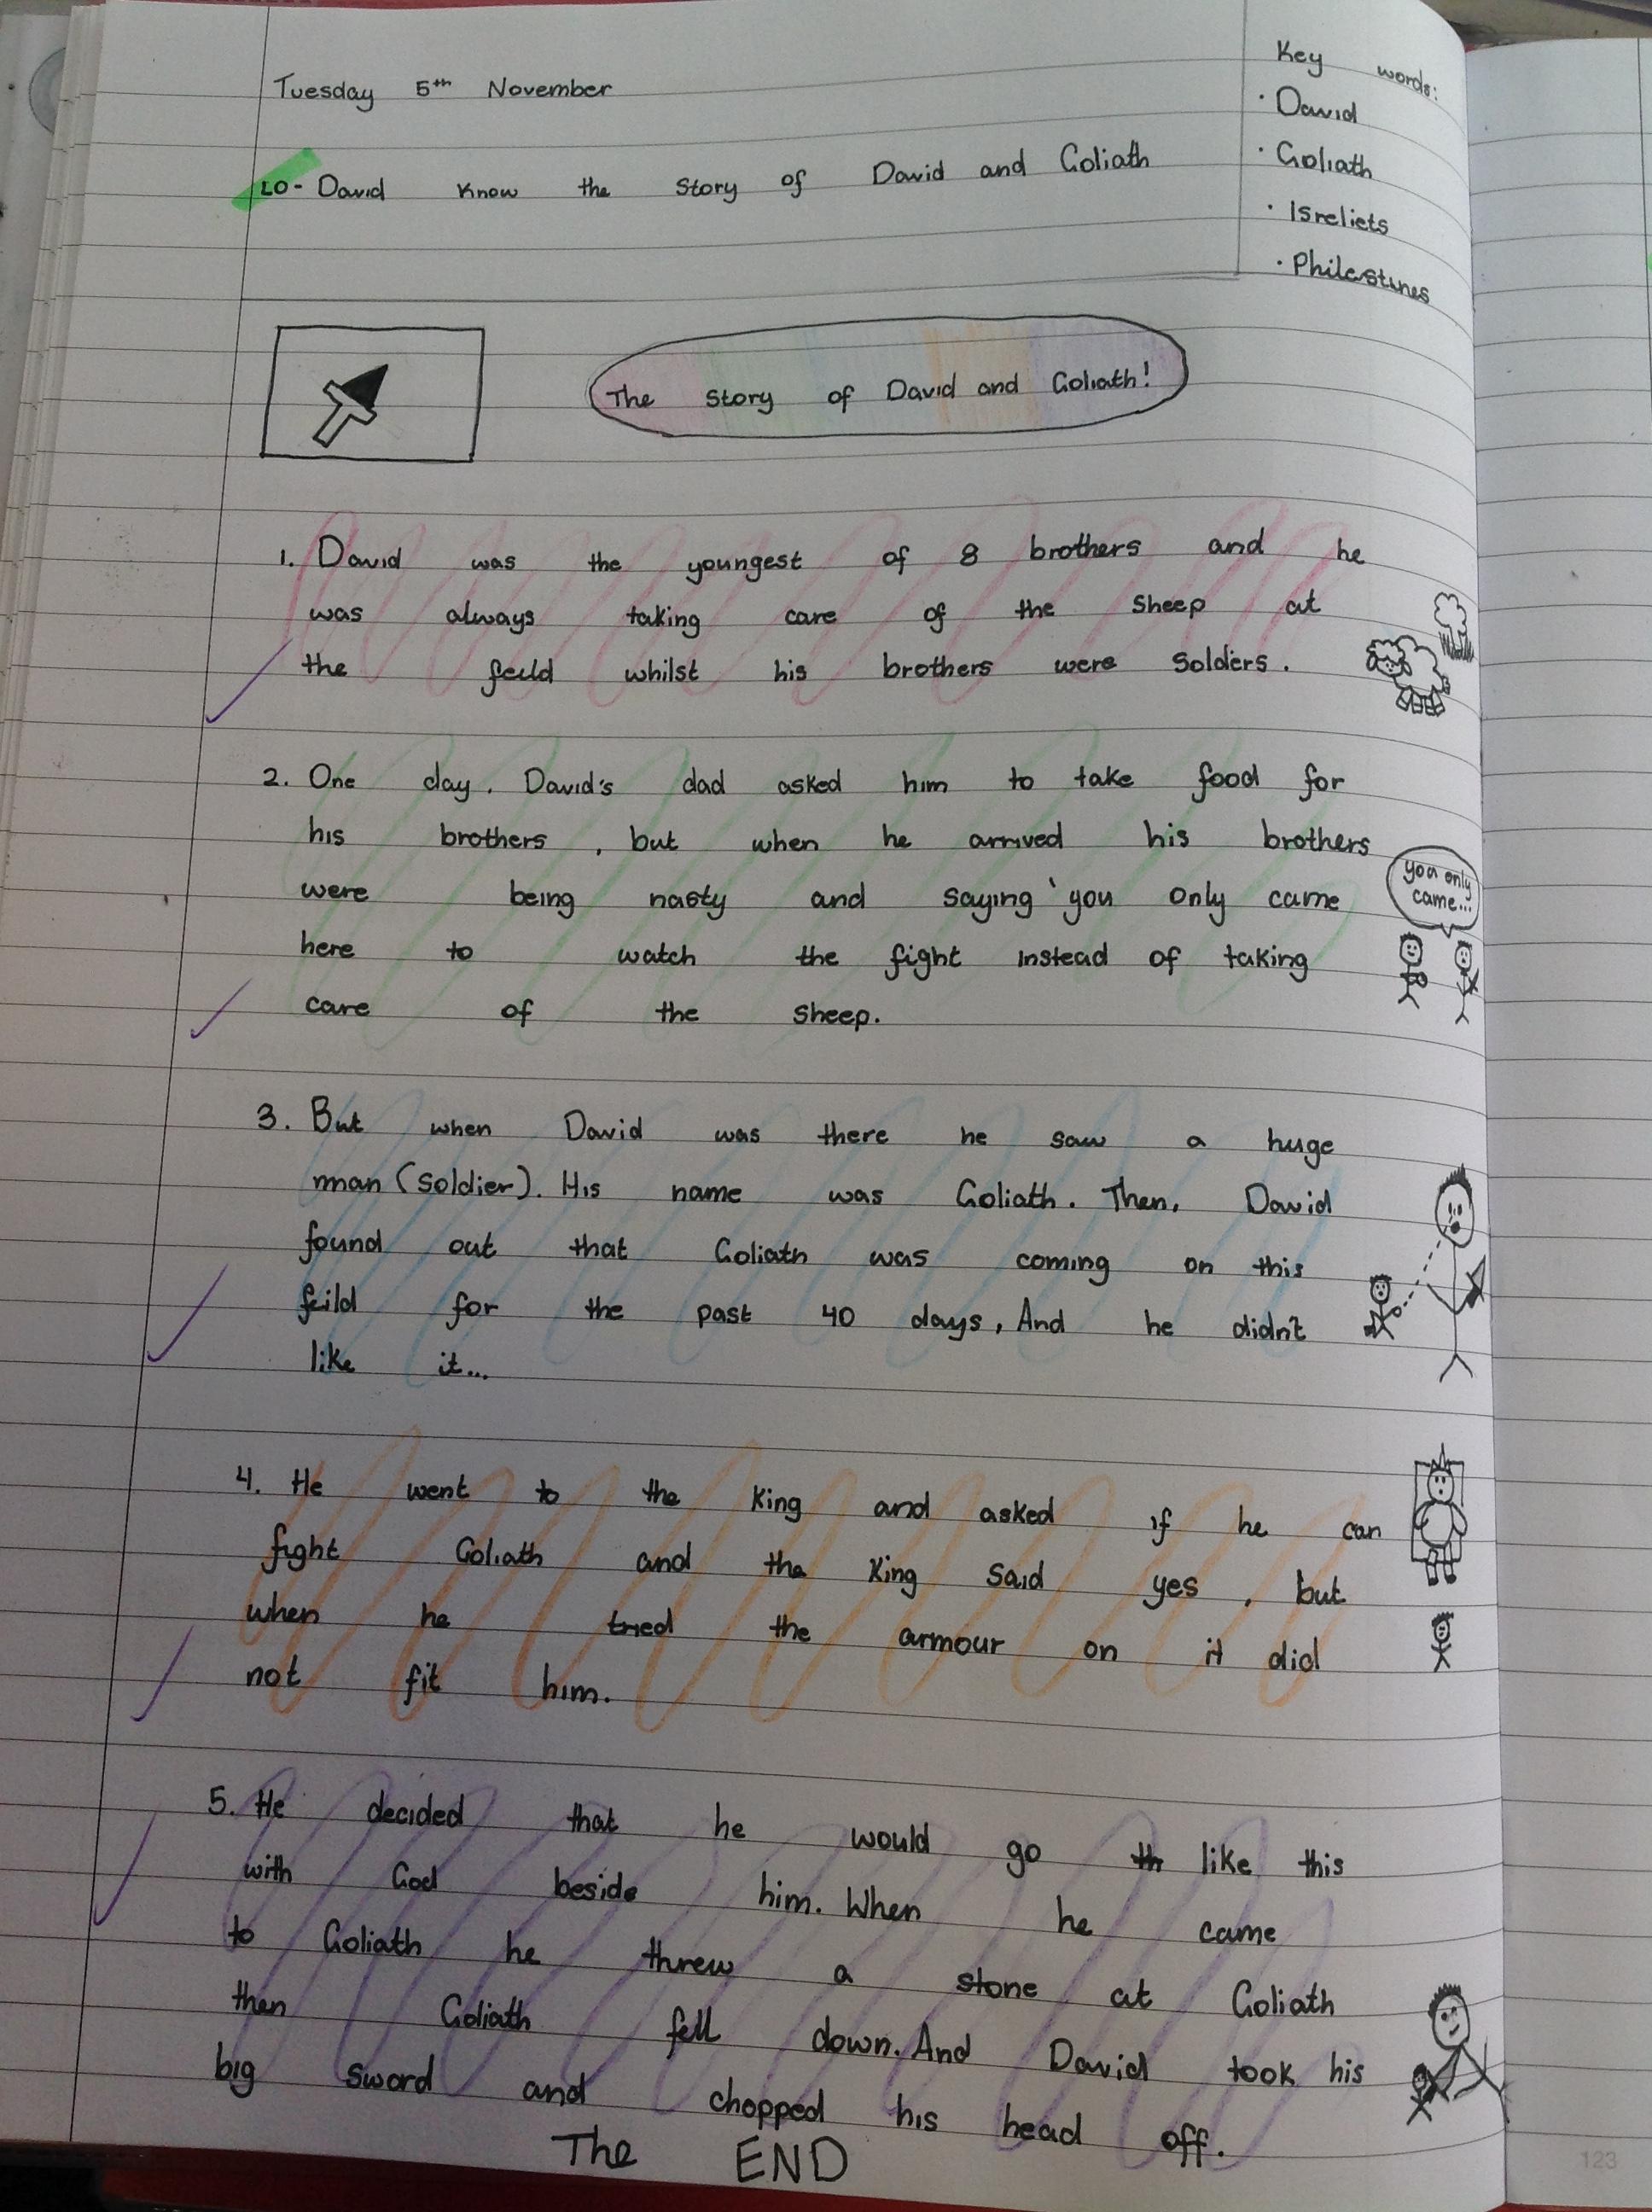 Tuesday 5th November
LO - David know the story of David and Goliath
Key words:
· David
· Goliath
· Isreliets
· Philestines
The story of David and Goliath!
1. David was the youngest of 8 brothers and he
was always taking care of the sheep at
the feild whilst his brothers were solders.
2. One day, David's dad asked him to take food for
his brothers, but when he arrived his brothers
were being nasty and saying 'you only came
here to watch the fight instead of taking
care of the sheep.
you only
came...
3. But when David was there he saw a huge
man (soldier). His name was Goliath. Then, David
found out that Goliath was coming on this
feild for the past 40 days, And he didn't
like it...
4. He went to the king and asked if he can
fight Goliath and the King said yes, but
when he tried the armour on it did
not fit him.
5. He decided that he would go th like this
with God beside him. When he came
to Goliath he threw a stone at Goliath
then Goliath fell down. And David took his
big sword and chopped his head off.
The END
123